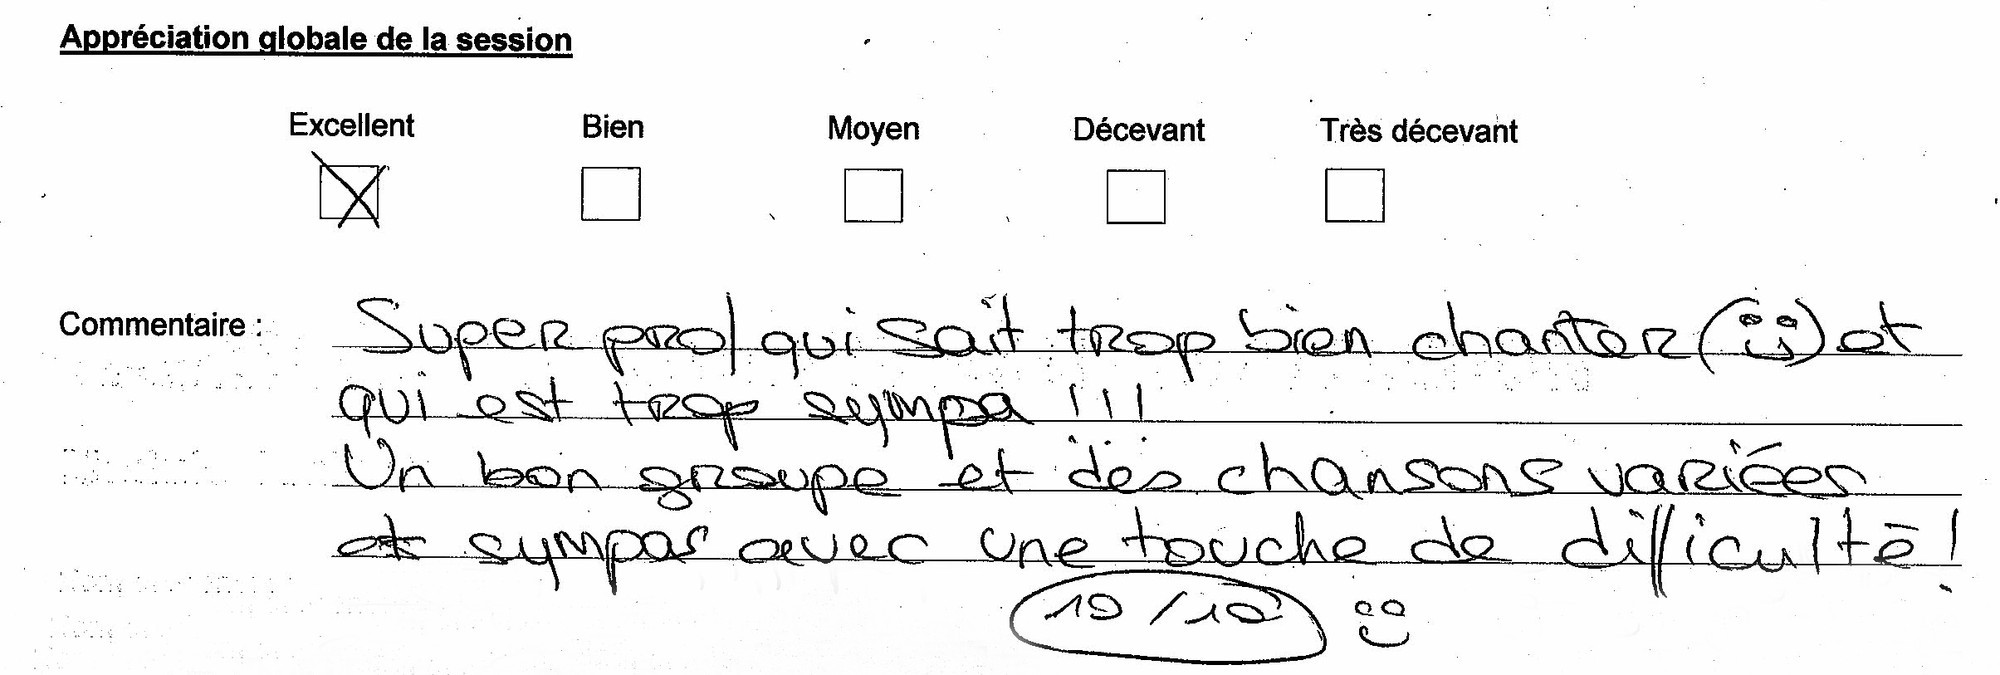 Appréciation globale de la session
Excellent Bien Moyen Décevant Très décevant
Commentaire : Super prof qui sait trop bien chanter (☺) et
qui est trop sympa !!!
Un bon groupe et des chansons variées
et sympas avec une touche de difficulté !
10/10 ☺